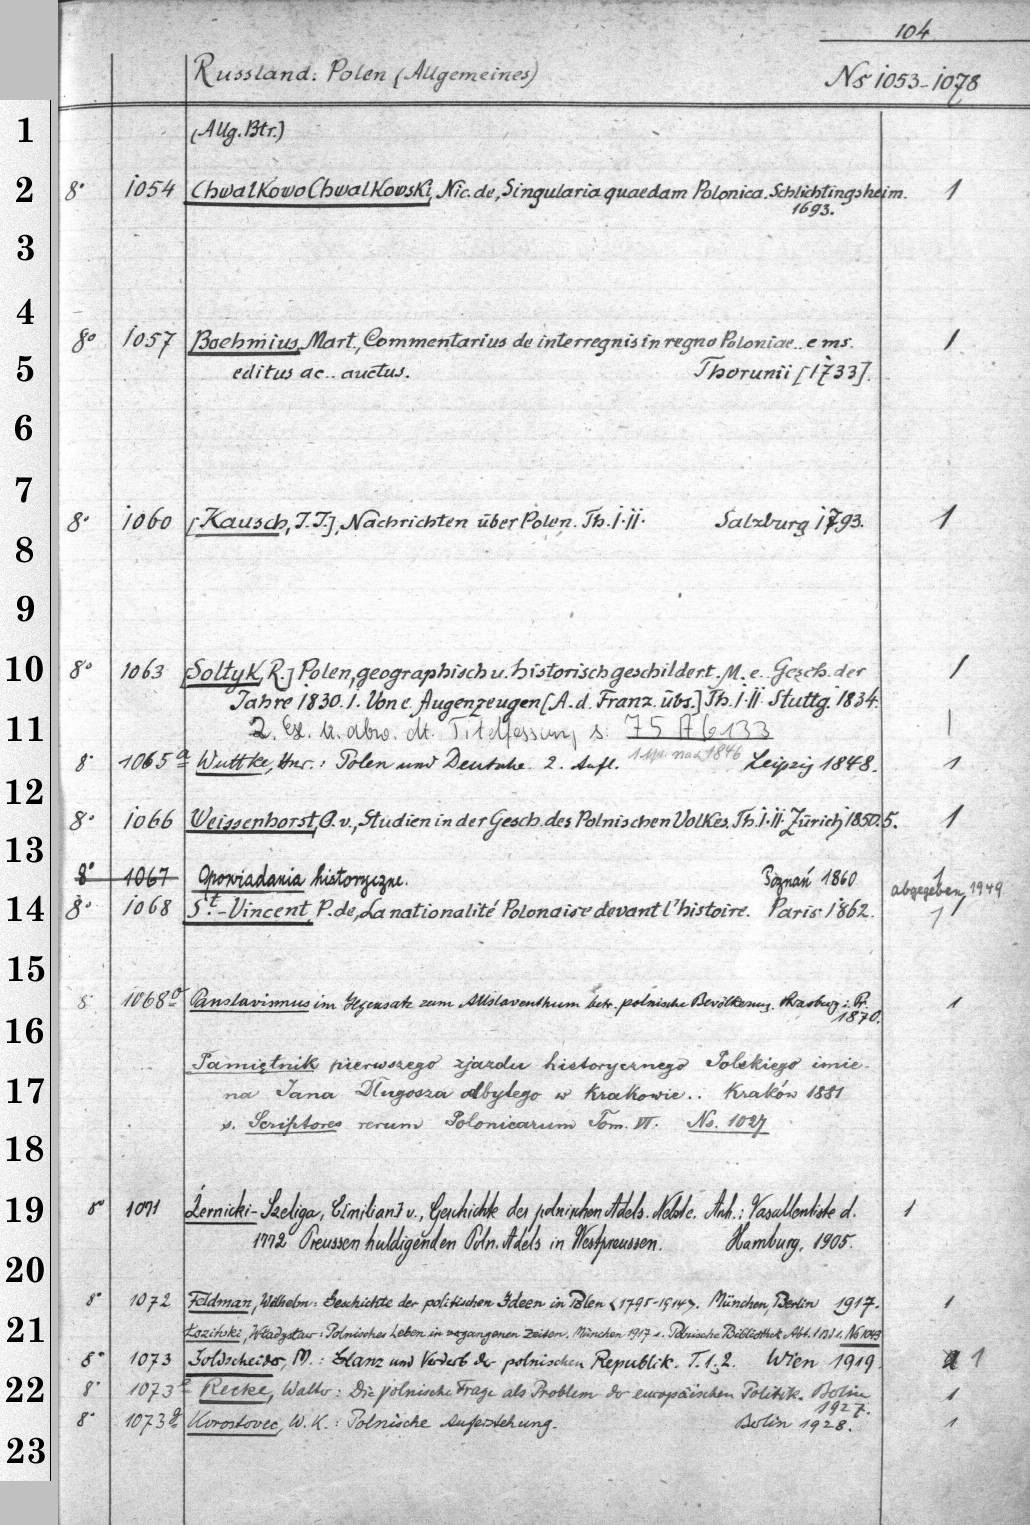 104
Russland: Polen (Allgemeines) No 1053-1078
1 (Allg. Btr.)
2 8° 1054 Chwalkowo Chwalkowski, Nic. de, Singularia quaedam Polonica. Schlichtingsheim. 1
1693.
3
4
8° 1057 Boehmius, Mart., Commentarius de interregnis in regno Poloniae.. e ms. 1
5 editus ac.. auctus. Thorunii [1733].
6
7
8° 1060 [Kausch, J.J.], Nachrichten über Polen. Th. I.II. Salzburg 1793. 1
8
9
10 8° 1063 [Soltyk, R.] Polen, geographisch u. historisch geschildert. M. e. Gesch. der 1
Jahre 1830.1. Von e. Augenzeugen [A. d. Franz. übs.] Th. I.II. Stuttg. 1834.
11 2. Ex. u. abw. dt. Titelfassung s. 75 A 6133 1
8° 1065a Wuttke, Hnr.: Polen und Deutsche. 2. Aufl. 1846 Leipzig 1848. 1
12
8° 1066 Weissenhorst, O. v., Studien in der Gesch. des Polnischen Volkes. Th. I.II. Zürich 1850.5. 1
13
8° 1067 Opowiadania historyczne. Poznań 1860 1
abgegeben, 1949
14 8° 1068 St.-Vincent, P. de, La nationalité Polonaise devant l'histoire. Paris 1862. 1
15
8° 1068 Panslavismus im Gegensatz zum Allslaventhum betr. polnische Bevölkerung. Strasburg: Pr. 1
1870.
16
Pamiętnik pierwszego zjazdu historycznego Polskiego imie-
17 na Jana Długosza odbytego w Krakowie.. Kraków 1881
s. Scriptores rerum Polonicarum Tom. VI. No. 1027
18
19 8° 1071 Żernicki-Szeliga, Emilian v., Geschichte des polnischen Adels. Nebst e. Anh.: Vasallenliste d. 1
1772 Preussen huldigenden Poln. Adels in Westpreussen. Hamburg, 1905.
20
8° 1072 Feldman, Wilhelm: Geschichte der politischen Ideen in Polen <1795-1914>. München, Berlin 1917. 1
21 Łoziński, Władysław: Polnisches Leben in vergangenen Zeiten. München 1917 s. Polnische Bibliothek, Abt. No 1043
8° 1073 Goldscheider, W.: Glanz und Verderb der polnischen Republik. T. 1.2. Wien 1919. 1
22 8° 1073c Recke, Walter: Die polnische Frage als Problem der europäischen Politik. Berlin 1
1927.
8° 1073g Korostovec, W. K.: Polnische Auferstehung. Berlin 1928. 1
23